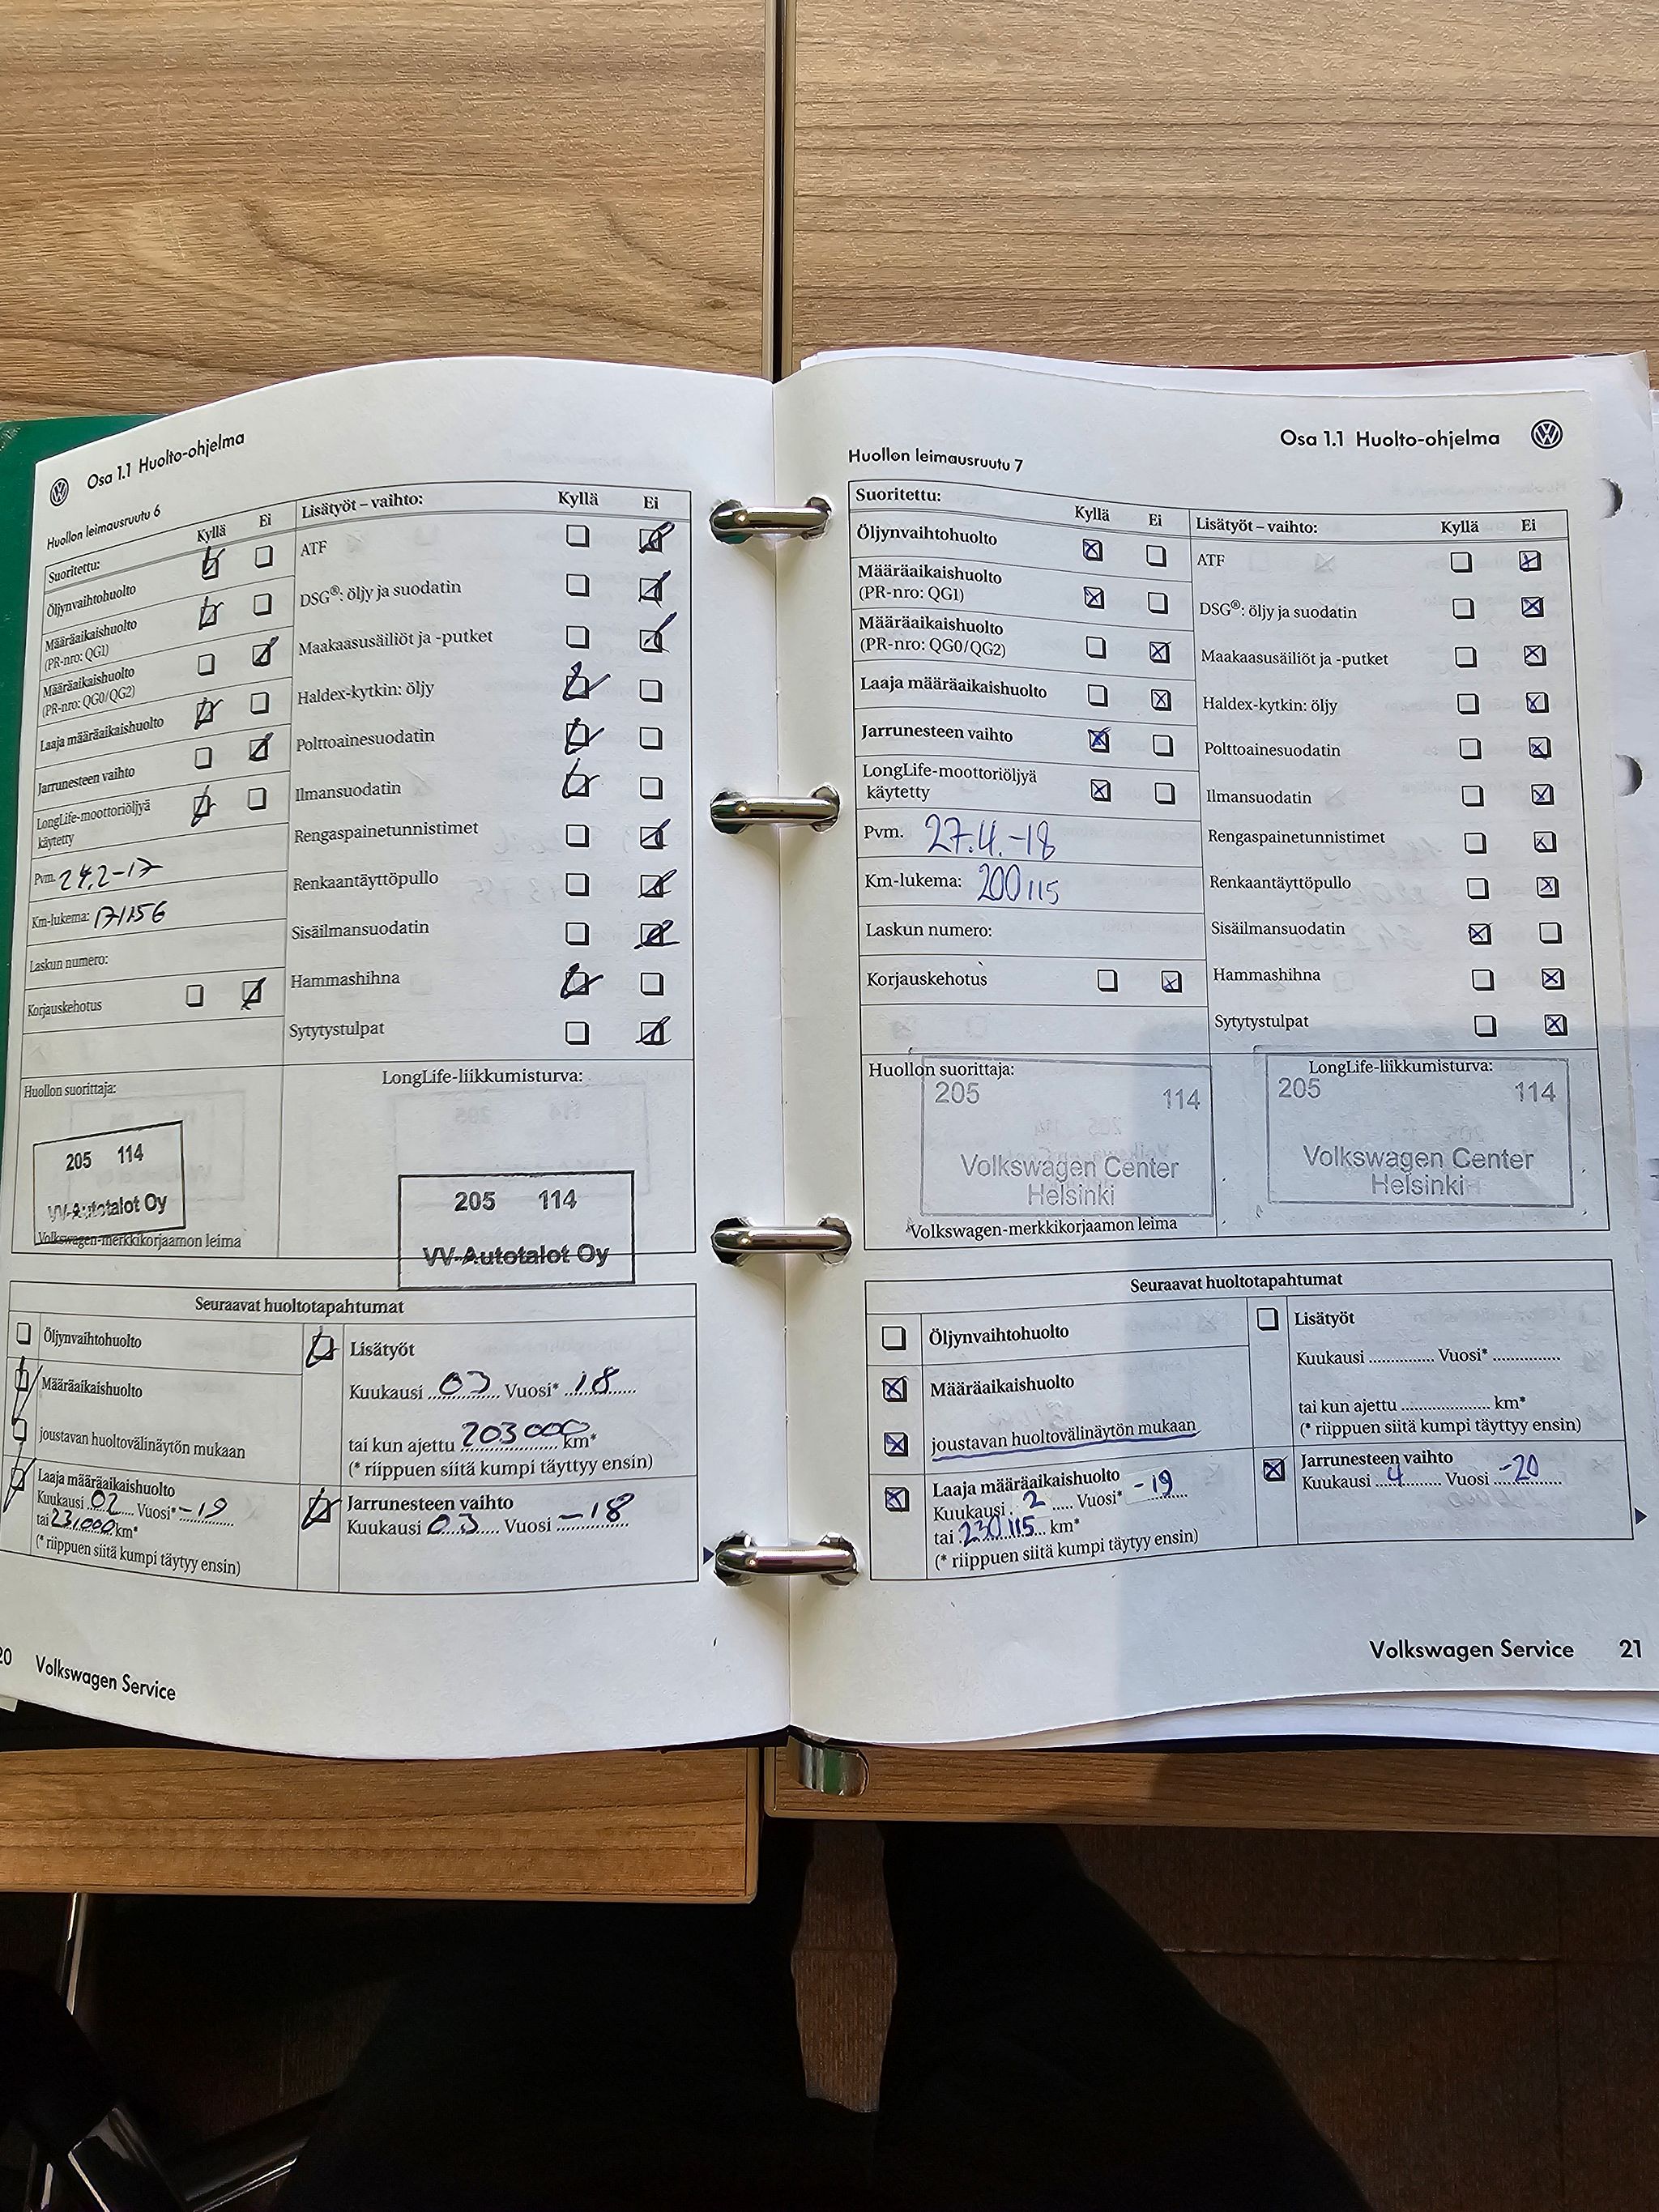 Osa 1.1 Huolto-ohjelma
Huollon leimausruutu 6
Suoritettu:
Kyllä Ei
Öljynvaihtohuolto
Määräaikaishuolto
(PR-nro: QG1)
Määräaikaishuolto
(PR-nro: QG0/QG2)
Laaja määräaikaishuolto
Jarrunesteen vaihto
LongLife-moottoriöljyä
käytetty
Pvm. 24.2-17
Km-lukema: 171156
Laskun numero:
Korjauskehotus
Lisätyöt – vaihto:
Kyllä Ei
ATF
DSG®: öljy ja suodatin
Maakaasusäiliöt ja -putket
Haldex-kytkin: öljy
Polttoainesuodatin
Ilmansuodatin
Rengaspainetunnistimet
Renkaantäyttöpullo
Sisäilmansuodatin
Hammashihna
Sytytystulpat
Huollon suorittaja:
205 114
VV-Autotalot Oy
Volkswagen-merkkikorjaamon leima
LongLife-liikkumisturva:
205 114
VV-Autotalot Oy
Seuraavat huoltotapahtumat
Öljynvaihtohuolto
Määräaikaishuolto
joustavan huoltovälinäytön mukaan
Laaja määräaikaishuolto
Kuukausi 02 Vuosi* -19
tai 231000 km*
(* riippuen siitä kumpi täytyy ensin)
Lisätyöt
Kuukausi 03 Vuosi* 18
tai kun ajettu 203000 km*
(* riippuen siitä kumpi täyttyy ensin)
Jarrunesteen vaihto
Kuukausi 03 Vuosi -18
20 Volkswagen Service
Osa 1.1 Huolto-ohjelma
Huollon leimausruutu 7
Suoritettu:
Kyllä Ei
Öljynvaihtohuolto
Määräaikaishuolto
(PR-nro: QG1)
Määräaikaishuolto
(PR-nro: QG0/QG2)
Laaja määräaikaishuolto
Jarrunesteen vaihto
LongLife-moottoriöljyä
käytetty
Pvm. 27.4.-18
Km-lukema: 200115
Laskun numero:
Korjauskehotus
Lisätyöt – vaihto:
Kyllä Ei
ATF
DSG®: öljy ja suodatin
Maakaasusäiliöt ja -putket
Haldex-kytkin: öljy
Polttoainesuodatin
Ilmansuodatin
Rengaspainetunnistimet
Renkaantäyttöpullo
Sisäilmansuodatin
Hammashihna
Sytytystulpat
Huollon suorittaja:
205 114
Volkswagen Center
Helsinki
Volkswagen-merkkikorjaamon leima
LongLife-liikkumisturva:
205 114
Volkswagen Center
Helsinki
Seuraavat huoltotapahtumat
Öljynvaihtohuolto
Määräaikaishuolto
joustavan huoltovälinäytön mukaan
Laaja määräaikaishuolto
Kuukausi 2 Vuosi* -19
tai 230115 km*
(* riippuen siitä kumpi täytyy ensin)
Lisätyöt
Kuukausi Vuosi*
tai kun ajettu km*
(* riippuen siitä kumpi täyttyy ensin)
Jarrunesteen vaihto
Kuukausi 4 Vuosi -20
Volkswagen Service 21